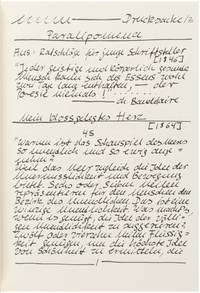 Drucksache 12
Paralipomena
Aus: Ratschläge für junge Schriftsteller
[1846]
"Jeder geistig und körperlich gesunde
Mensch kann sich des Essens wohl
zwei Tage lang enthalten, – der
Poesie niemals!"
ch. Baudelaire
Mein blossgelegtes Herz
[1864]
45
"Warum ist das Schauspiel des Meeres
so unendlich und so ewig ange-
nehm?
Weil das Meer zugleich die Idee der
Unermesslichkeit und Bewegung
bietet. Sechs oder sieben Meilen
repräsentieren für den Menschen den
Bezirk des Unendlichen. Das ist eine
Was macht's,
wenn es genügt, die Idee der völli-
gen Unendlichkeit zu suggerieren?
Zwölf oder vierzehn Meilen Flüssig-
keit genügen, um die höchste Idee
von Schönheit zu ermitteln, die